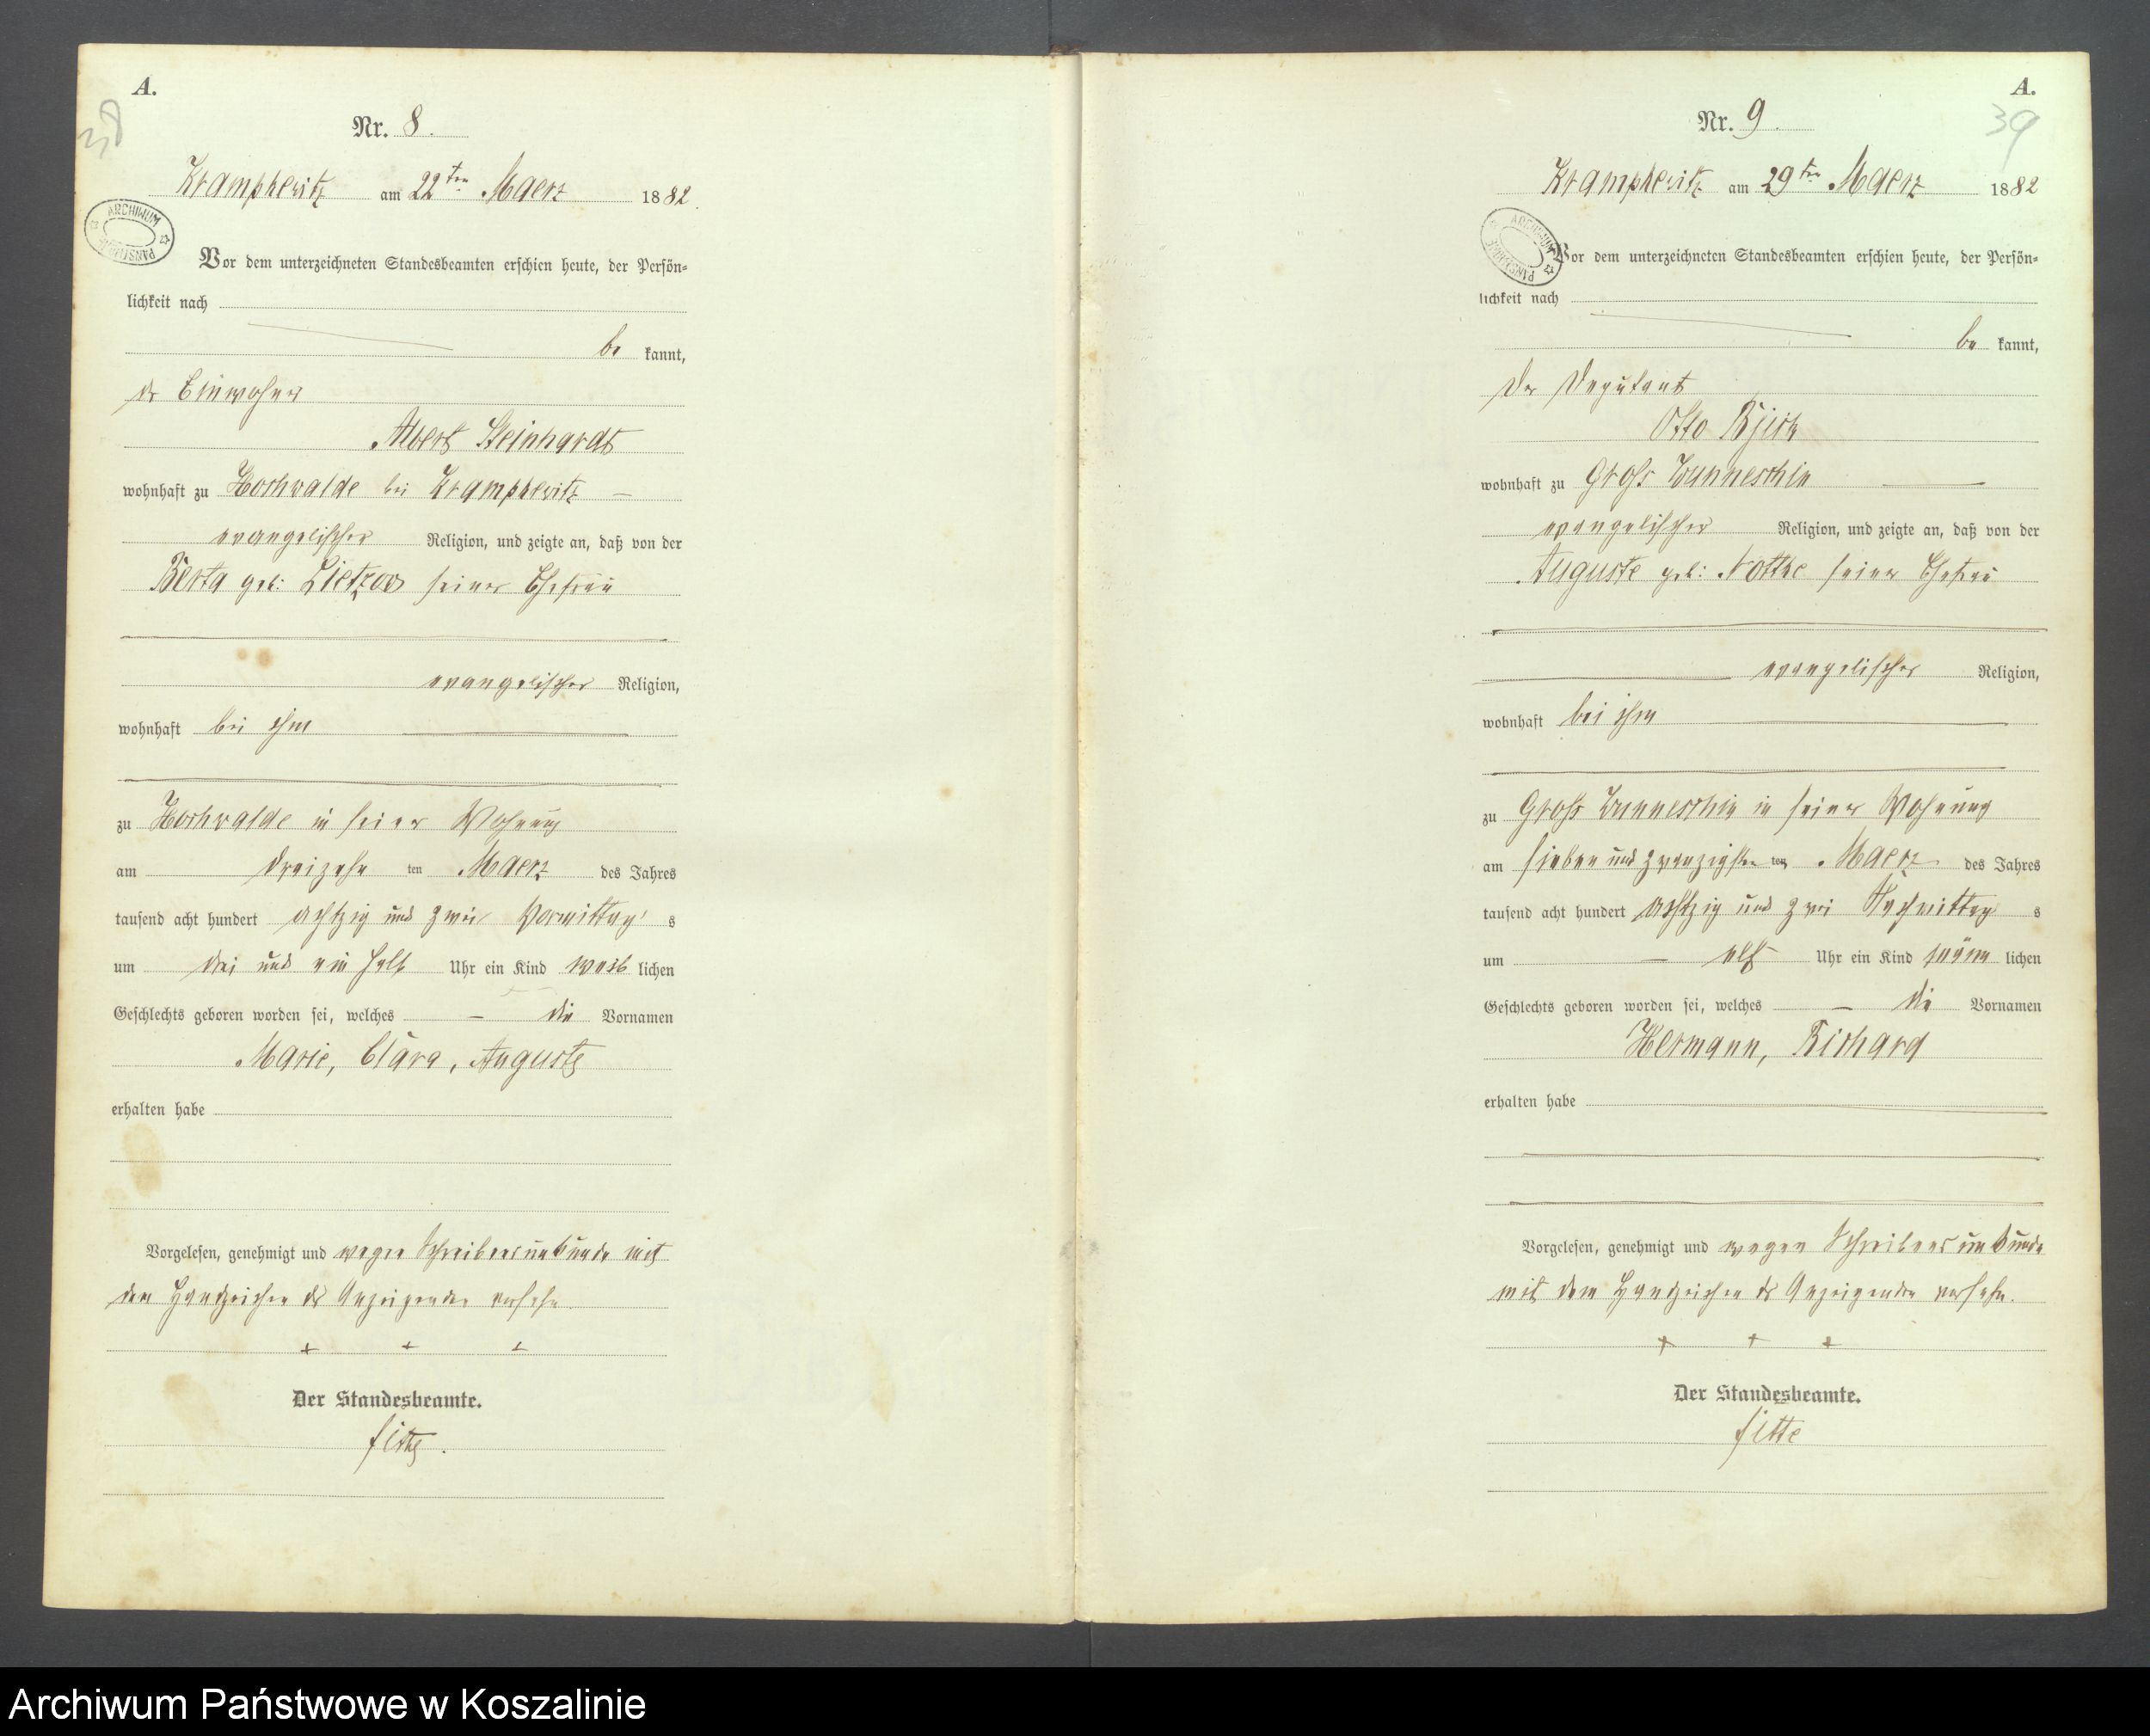 A.
38
Nr. 8.
Krampkewitz am 22ten Maerz 1882.
ARCHIWUM
Vor dem unterzeichneten Standesbeamten erschien heute, der Persön-
lichkeit nach
be kannt,
der Einwohner
Albert Steinhardt
wohnhaft zu Hochwalde bei Krampkewitz
evangelischer Religion, und zeigte an, daß von der
Berta geb: Lietzow seiner Ehefrau
evangelischer Religion,
wohnhaft bei ihm
zu Hochwalde in seiner Wohnung
am dreizehn ten Maerz des Jahres
tausend acht hundert achtzig und zwei Vormittag s
um drei und ein halb Uhr ein Kind weib lichen
Geschlechts geboren worden sei, welches die Vornamen
Marie, Clara, Auguste
erhalten habe
Vorgelesen, genehmigt und wegen Schreibensunkunde mit
dem Handzeichen des Anzeigenden versehn.
+ + +
Der Standesbeamte.
A.
39
Nr. 9.
Krampkewitz am 29ten Maerz 1882
ARCHIWUM
Vor dem unterzeichneten Standesbeamten erschien heute, der Persön-
lichkeit nach
be kannt,
Der Deputant
Otto
wohnhaft zu Groß Wunneschin
evangelischer Religion, und zeigte an, daß von der
Auguste geb: Nottke seiner Ehefrau
evangelischer Religion,
wohnhaft bei ihm
zu Groß Wunneschin in seiner Wohnung
am sieben und zwanzigsten ten Maerz des Jahres
tausend acht hundert achtzig und zwei Nachmittag s
um elf Uhr ein Kind männ lichen
Geschlechts geboren worden sei, welches die Vornamen
Hermann, Richard
erhalten habe
Vorgelesen, genehmigt und wegen Schreibensunkunde
mit dem Handzeichen des Anzeigenden versehn.
+ + +
Der Standesbeamte.
Archiwum Państwowe w Koszalinie